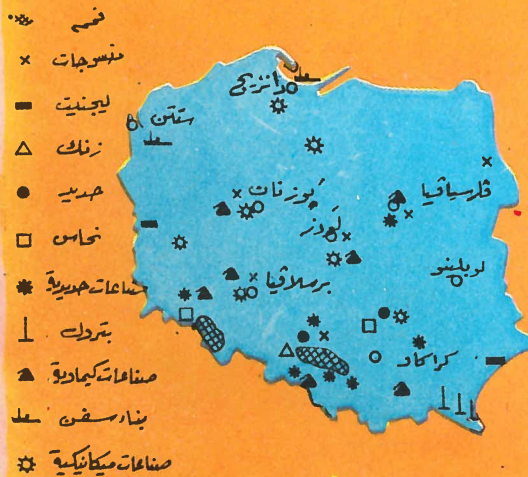 فحم
منسوجات
ليجنيت
زنك
حديد
نحاس
صناعات حديدية
بترول
صناعات كيماوية
بناء سفن
صناعات ميكانيكية
دانزيج
ستتن
ڤرسياڤيا
بوزنان
لودز
لوبلينو
برسلاڤيا
كراكاو